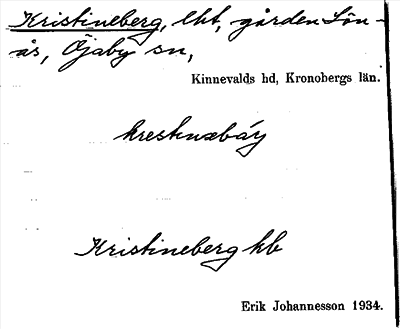 Kristineberg, lht, gården Lön-
ås, Öjaby sn,
Kinnevalds hd, Kronobergs län.
krestnəbáy
Kristineberg kb
Erik Johannesson 1934.